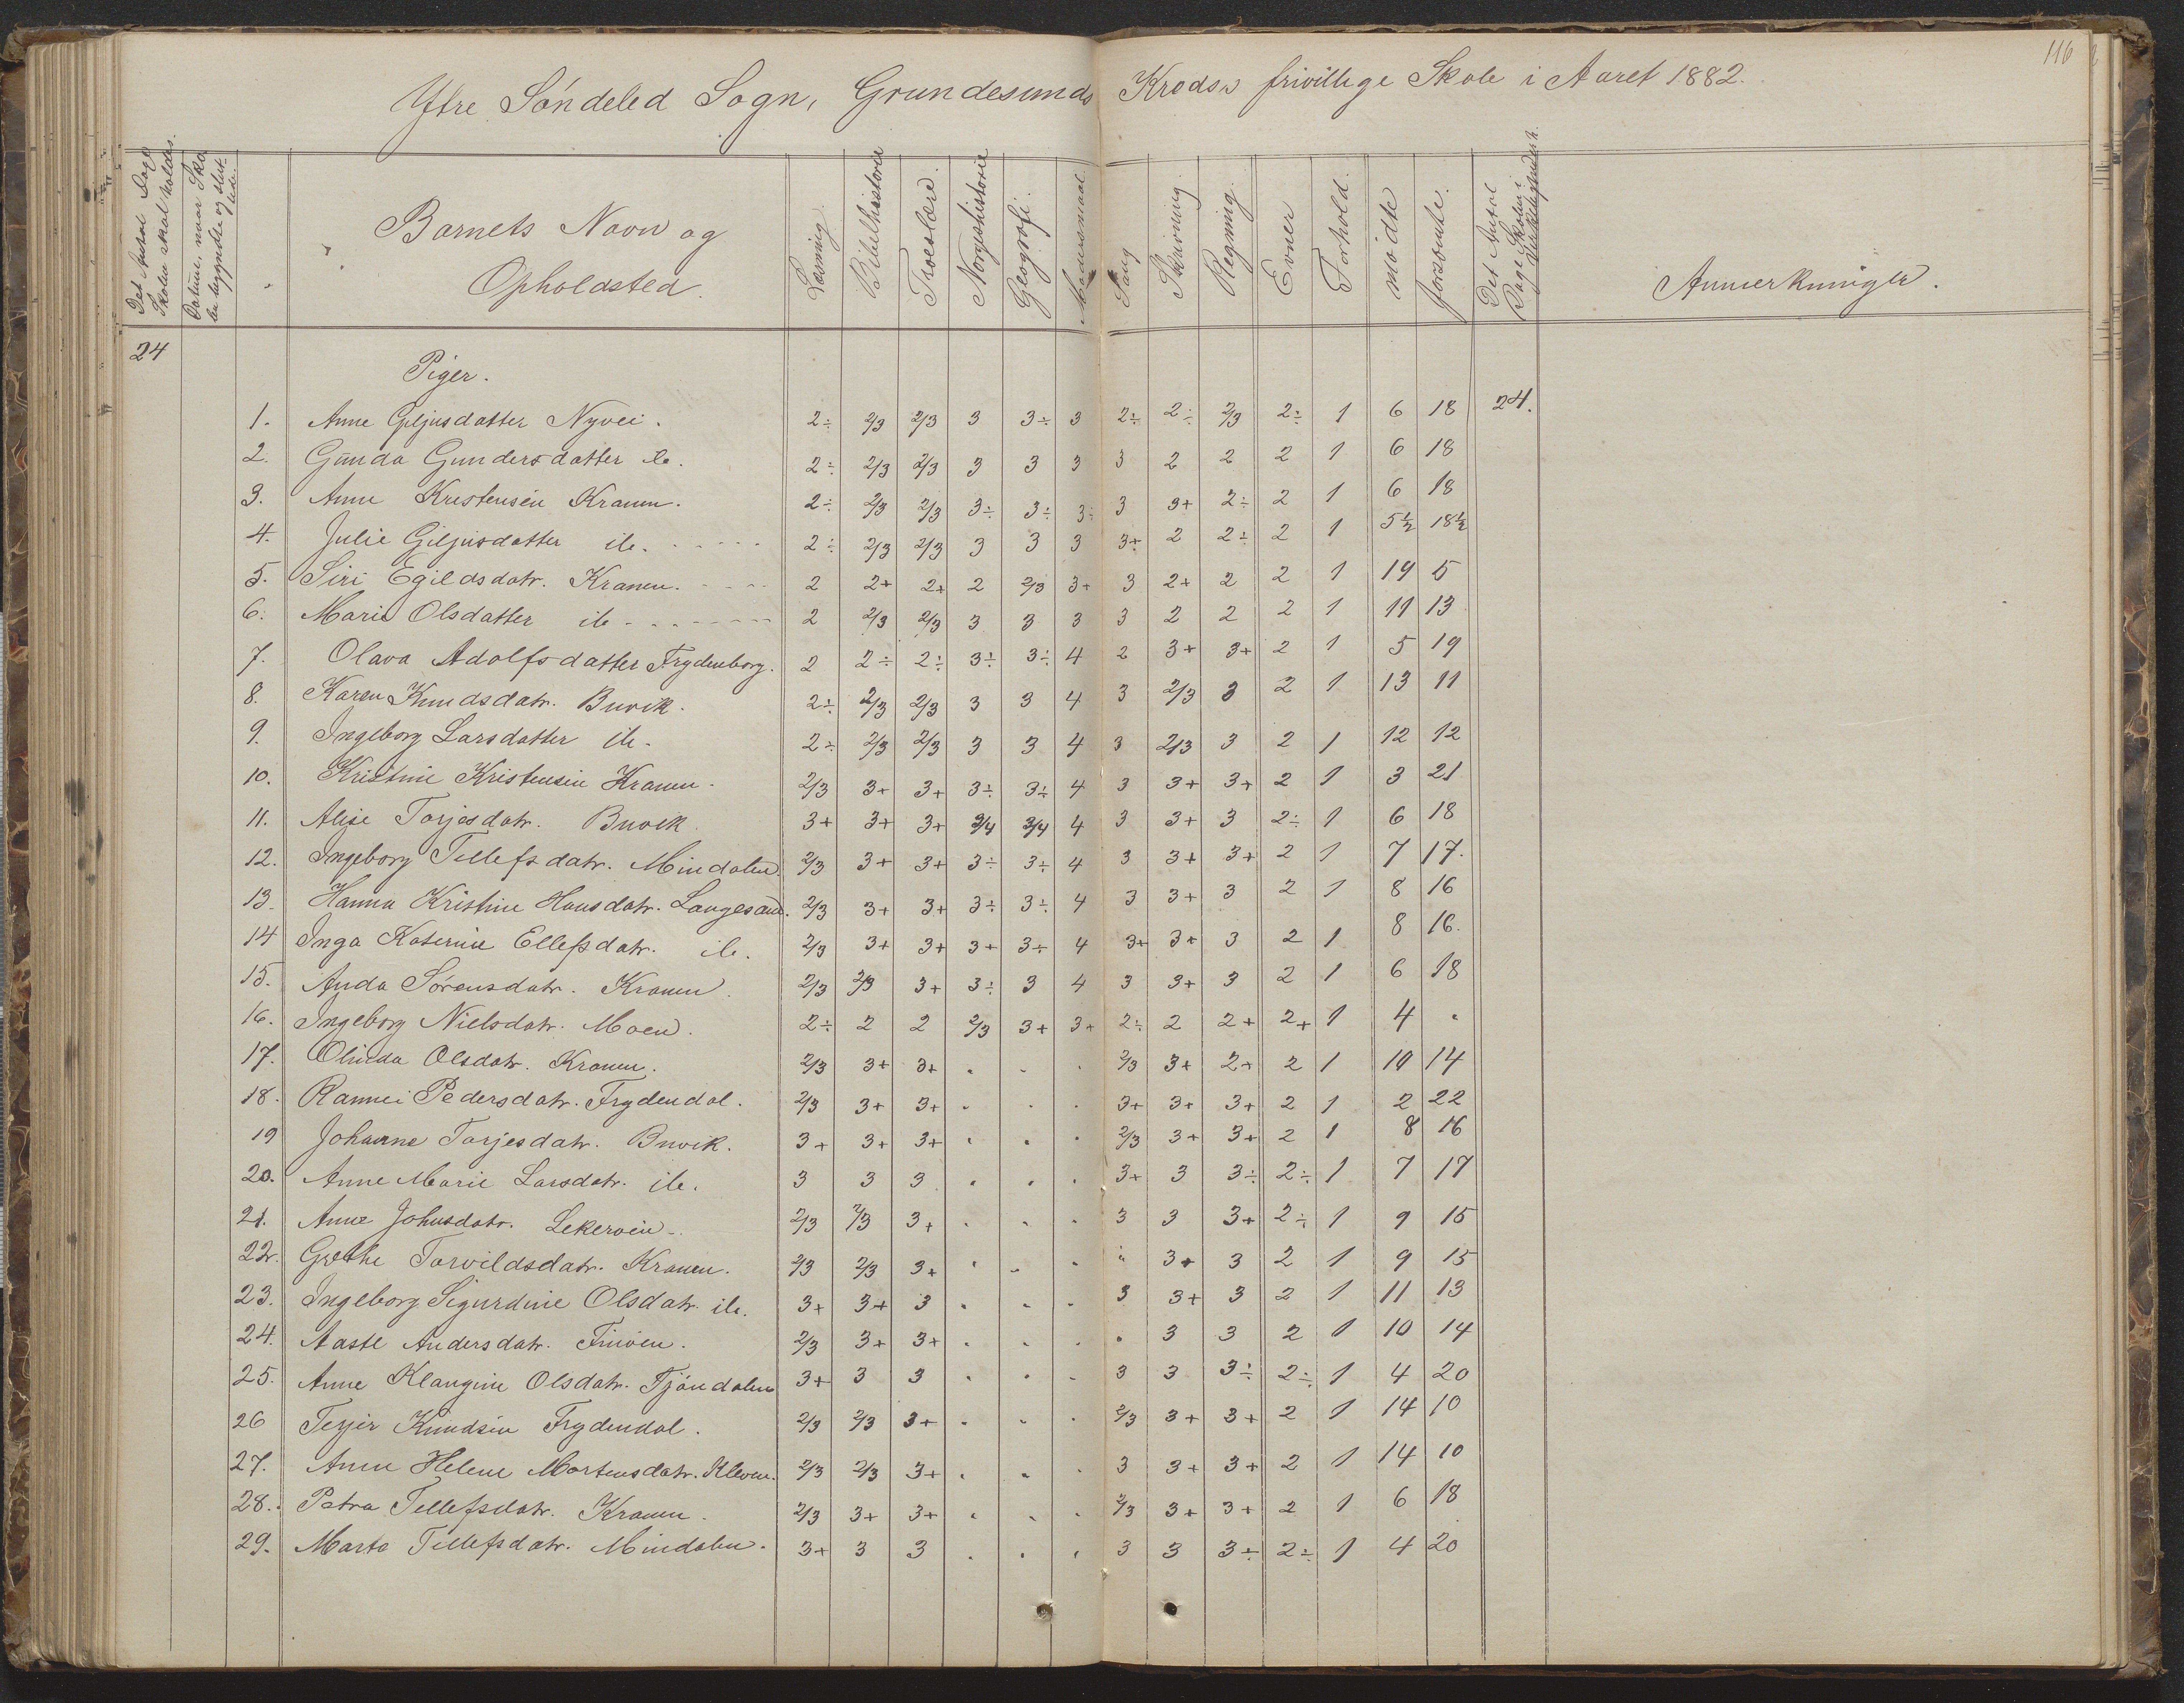 116
Ytre Söndeled Sogn, Grundesunds Kreds's frivillige Skole i Aaret 1882.
Det Antal Dage Skolen skal holdes.
Datum, naar Skolen begyndte og sluttede.
Barnets Navn og Opholdsted.
Læsning.
Bibelhistorie
Troeslære.
Norgeshistorie
Geografi.
Modersmaal
Sang
Skrivning.
Regning.
Evner
Forhold.
mødte
forsømte.
Det Antal Dage Skolen i Virkeligheden h.
Anmerkninger.
24
Piger.
1. Anne Giljusdatter Nyvei. 2÷ 2/3 2/3 3 3÷ 3 2÷ 2÷ 2/3 2÷ 1 6 18 24.
2. Gunda Gundersdatter ib. 2÷ 2/3 2/3 3 3 3 3 2 2 2 1 6 18
3. Anne Kristensen Kranen. 2÷ 2/3 2/3 3÷ 3÷ 3÷ 3 3+ 2÷ 2 1 6 18
4. Julie Giljusdatter ib. 2÷ 2/3 2/3 3 3 3 3+ 2 2÷ 2 1 5½ 18½
5. Siri Egildsdatr. Kranen. 2 2+ 2+ 2 2/3 3+ 3 2+ 2 2 1 19 5
6. Marie Olsdatter ib 2 2/3 2/3 3 3 3 3 2 2 2 1 11 13
7. Olava Adolfsdatter Frydenborg. 2 2÷ 2÷ 3÷ 3÷ 4 2 3+ 3+ 2 1 5 19
8. Karen Knudsdatr. Buvik. 2÷ 2/3 2/3 3 3 4 3 2/3 3 2 1 13 11
9. Ingeborg Larsdatter ib. 2÷ 2/3 2/3 3 3 4 3 2/3 3 2 1 12 12
10. Kristine Kristensen Kranen. 2/3 3+ 3+ 3÷ 3÷ 4 3 3+ 3+ 2 1 3 21
11. Alise Torjesdatr. Buvik 3+ 3+ 3+ 3/4 3/4 4 3 3+ 3 2÷ 1 6 18
12. Ingeborg Tellefsdatr. Mindalen 2/3 3+ 3+ 3÷ 3÷ 4 3 3+ 3+ 2 1 7 17.
13. Hanna Kristine Hansdatr. Langesand. 2/3 3+ 3+ 3÷ 3÷ 4 3 3+ 3 2 1 8 16
14 Inga Katerine Ellefsdatr. ib. 2/3 3+ 3+ 3+ 3÷ 4 3+ 3+ 3 2 1 8 16.
15. Anda Sörensdatr. Kranen. 2/3 2/3 3+ 3÷ 3 4 3 3+ 3 2 1 6 18
16. Ingeborg Nielsdatr. Moen. 2÷ 2 2 2/3 3+ 3+ 2÷ 2 2+ 2+ 1 4 "
17. Olinda Olsdatr. Kranen. 2/3 3+ 3+ " " " 2/3 3+ 2+ 2 1 10 14
18. Rannei Pedersdatr. Frydendal. 2/3 3+ 3+ " " " 3+ 3+ 3+ 2 1 2 22
19 Johanne Torjesdatr. Buvik. 3+ 3+ 3+ " " " 2/3 3+ 3+ 2 1 8 16
20. Anne Marie Larsdatr. ib. 3 3 3 " " " 3+ 3 3÷ 2÷ 1 7 17
21. Anne Johnsdatr. 2/3 2/3 3+ " " " 3 3 3+ 2÷ 1 9 15
22. Grethe Torvildsdatr. Kranen. 2/3 2/3 3+ " " " " 3+ 3 2 1 9 15
23. Ingeborg Sigurdine Olsdatr. ib. 3+ 3+ 3 " " " 3 3+ 3 2 1 11 13
24. Aaste Andersdatr. Finöen. 2/3 3+ 3+ " " " " 3 3 2 1 10 14
25. Anne Klangine Olsdatr. Tjöndalen 3+ 3 3 " " " 3 3 3÷ 2÷ 1 4 20
26 Terjer Knudsen Frydendal. 2/3 2/3 3+ " " " 2/3 3+ 3+ 2 1 14 10
27. Anne Helene Mortensdatr. Kleven. 2/3 2/3 3+ " " " 3 3+ 3+ 2 1 14 10
28. Petra Tellefsdatr. Kranen. 2/3 3+ 3+ " " " 2/3 3+ 3+ 2 1 6 18
29. Marta Tellefsdatr. Mindalen. 3+ 3 3 " " " 3 3 3÷ 2÷ 1 4 20